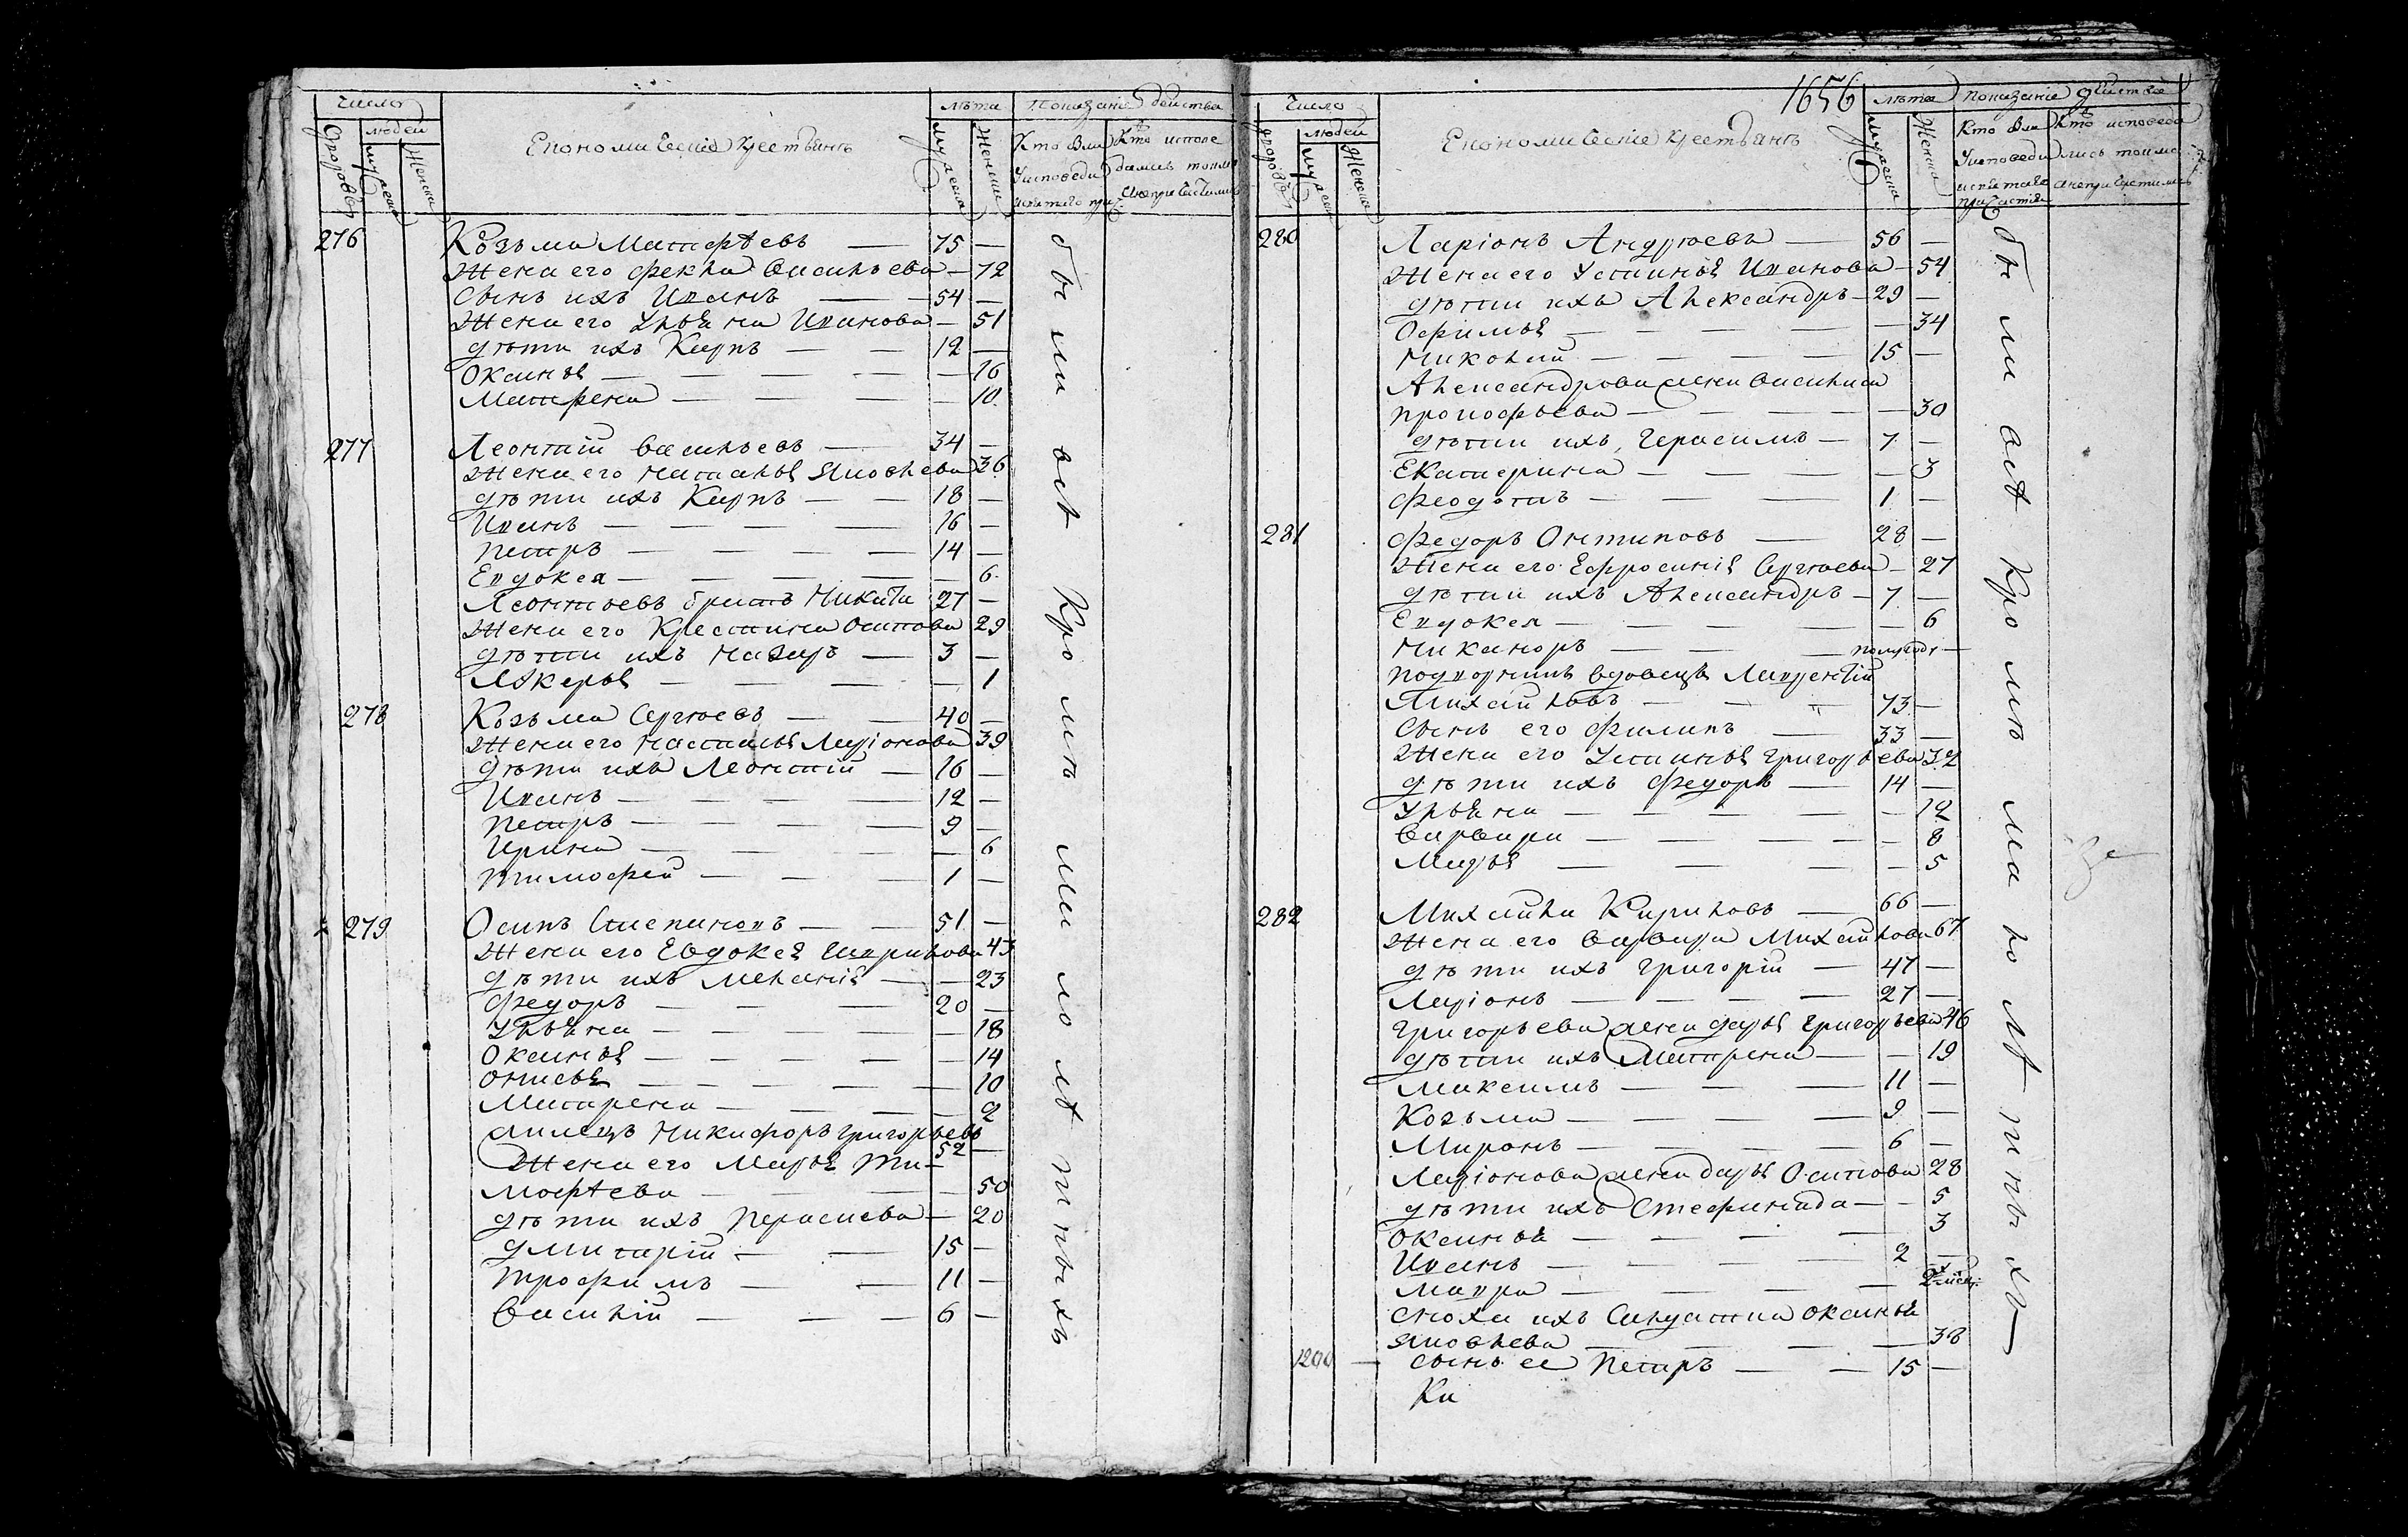 число
дворовъ
людей
мужеска
женска
Економическіе крестьянѣ
лѣта
мужеска
женска
показаніе действа
Кто были
у исповеди
и святаго при
Кто испове
дались токмо
а не причастились
276 Козьма Матфѣевъ — 75 —
Жена его Фекла Васильева — 72
Сынъ ихъ Иванъ — 54 —
Жена его Ульяна Иванова — 51
дѣти ихъ Карпъ — 12 —
Оксинья — 16
Матрена — 10
277 Леонтій Васильевъ — 34 —
Жена его Наталья Яковлева 36
дѣти ихъ Карпъ — 18 —
Иванъ — 16 —
Петръ — 14 —
Евдокея — 6
Леонтьевъ братъ Никита 27 —
Жена его Крестина Осипова 29
дѣти ихъ Назаръ — 3 —
Лѣкерья — 1
278 Козьма Сергѣевъ — 40 —
Жена его Настасья Ларіонова 39
дѣти ихъ Леонтій — 16 —
Иванъ — 12 —
Петръ — 9 —
Ирина — 6
Тимофей — 1 —
279 Осипъ Степановъ — 51 —
Жена его Евдокея Гаврилова 43
дѣти ихъ Меланія — 23
Федоръ — 20 —
Ульяна — 18
Оксинья — 14
Онисья — 10
Матрена — 2
Никифоръ Григорьевъ 52 —
Жена его Марья Ти-
мофѣева — 50
дѣти ихъ Парасковья — 20
Дмитрій — 15 —
Трофимъ — 11 —
Василій — 6 —
были всѣ кромѣ малолѣтныхъ
1656
число
дворовъ
людей
мужеска
женска
Економическіе крестьянѣ
лѣта
мужеска
женска
показаніе действа
Кто были
у исповеди
и святаго
причастія
Кто исповеда
лись токмо
а не причастились
280 Ларіонъ Андрѣевъ — 56 —
Жена его Устинья Иванова — 54
дѣти ихъ Александръ — 29 —
Офимья — 34
Николай — 15 —
Александрова жена Василиса
Прокофьева — 30
дѣти ихъ Герасимъ — 7 —
Екатерина — 3
Феодотъ — 1 —
281 Федоръ Онтиповъ — 28 —
Жена его Ефросинія Сергѣева — 27
дѣти ихъ Александръ — 7 —
Евдокея — 6
Никаноръ — полугоду —
подворникъ вдовецъ Лаврентій
Михайловъ — 73 —
Сынъ его Филипъ — 33 —
Жена его Устинья Григорьева 32
дѣти ихъ Федоръ — 14 —
Ульяна — 12
Варвара — 8
Марья — 5
282 Михайла Кириловъ — 66 —
Жена его Варвара Михайлова 67
дѣти ихъ Григорій — 47 —
Ларіонъ — 27 —
Григорьева жена Дарья Григорьева 46
дѣти ихъ Матрена — 19
Максимъ — 11 —
Козьма — 9 —
Миронъ — 6 —
Ларіонова жена Дарья Осипова 28
дѣти ихъ Стефанида — 5
Оксинья — 3
Иванъ — 2 —
Мавра — 2х мсцъ
Сноха ихъ Салдатка Оксинья
Яковлева — 38
1200 — Сынъ ее Петръ — 15 —
Ка
были всѣ кромѣ малолѣтныхъ